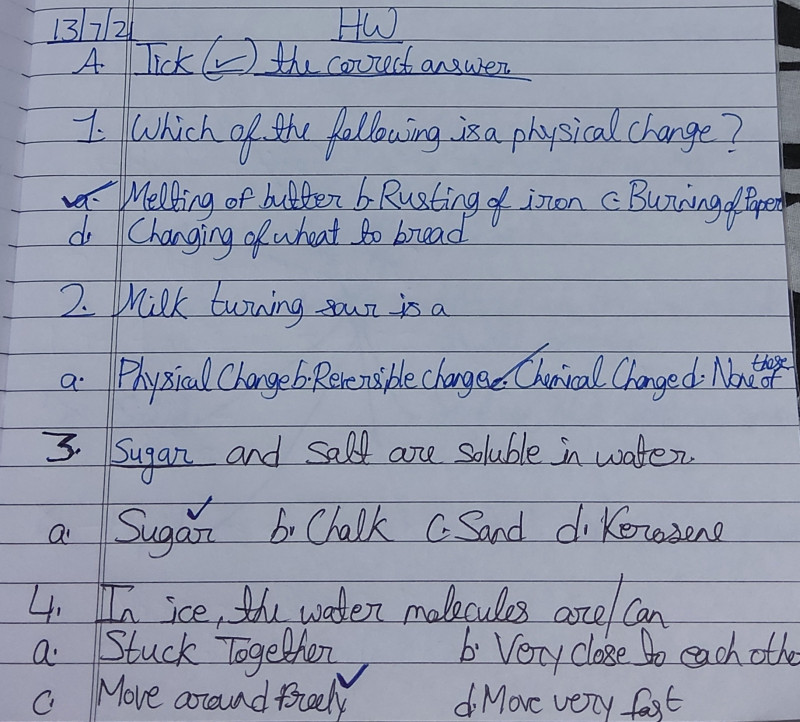 13/7/21 HW
A Tick (✓) the correct answer
1. Which of the following is a physical change?
✓a. Melting of butter b. Rusting of iron c. Burning of Paper
d. Changing of wheat to bread
2. Milk turning sour is a
a. Physical Change b. Reversible change c. ✓ Chemical Change d. None of these
3. Sugar and Salt are soluble in water.
a. Sugar ✓ b. Chalk c. Sand d. Kerosene
4. In ice, the water molecules are/Can
a. Stuck Together b. Very close to each othe
c. Move around freely ✓ d. Move very fast